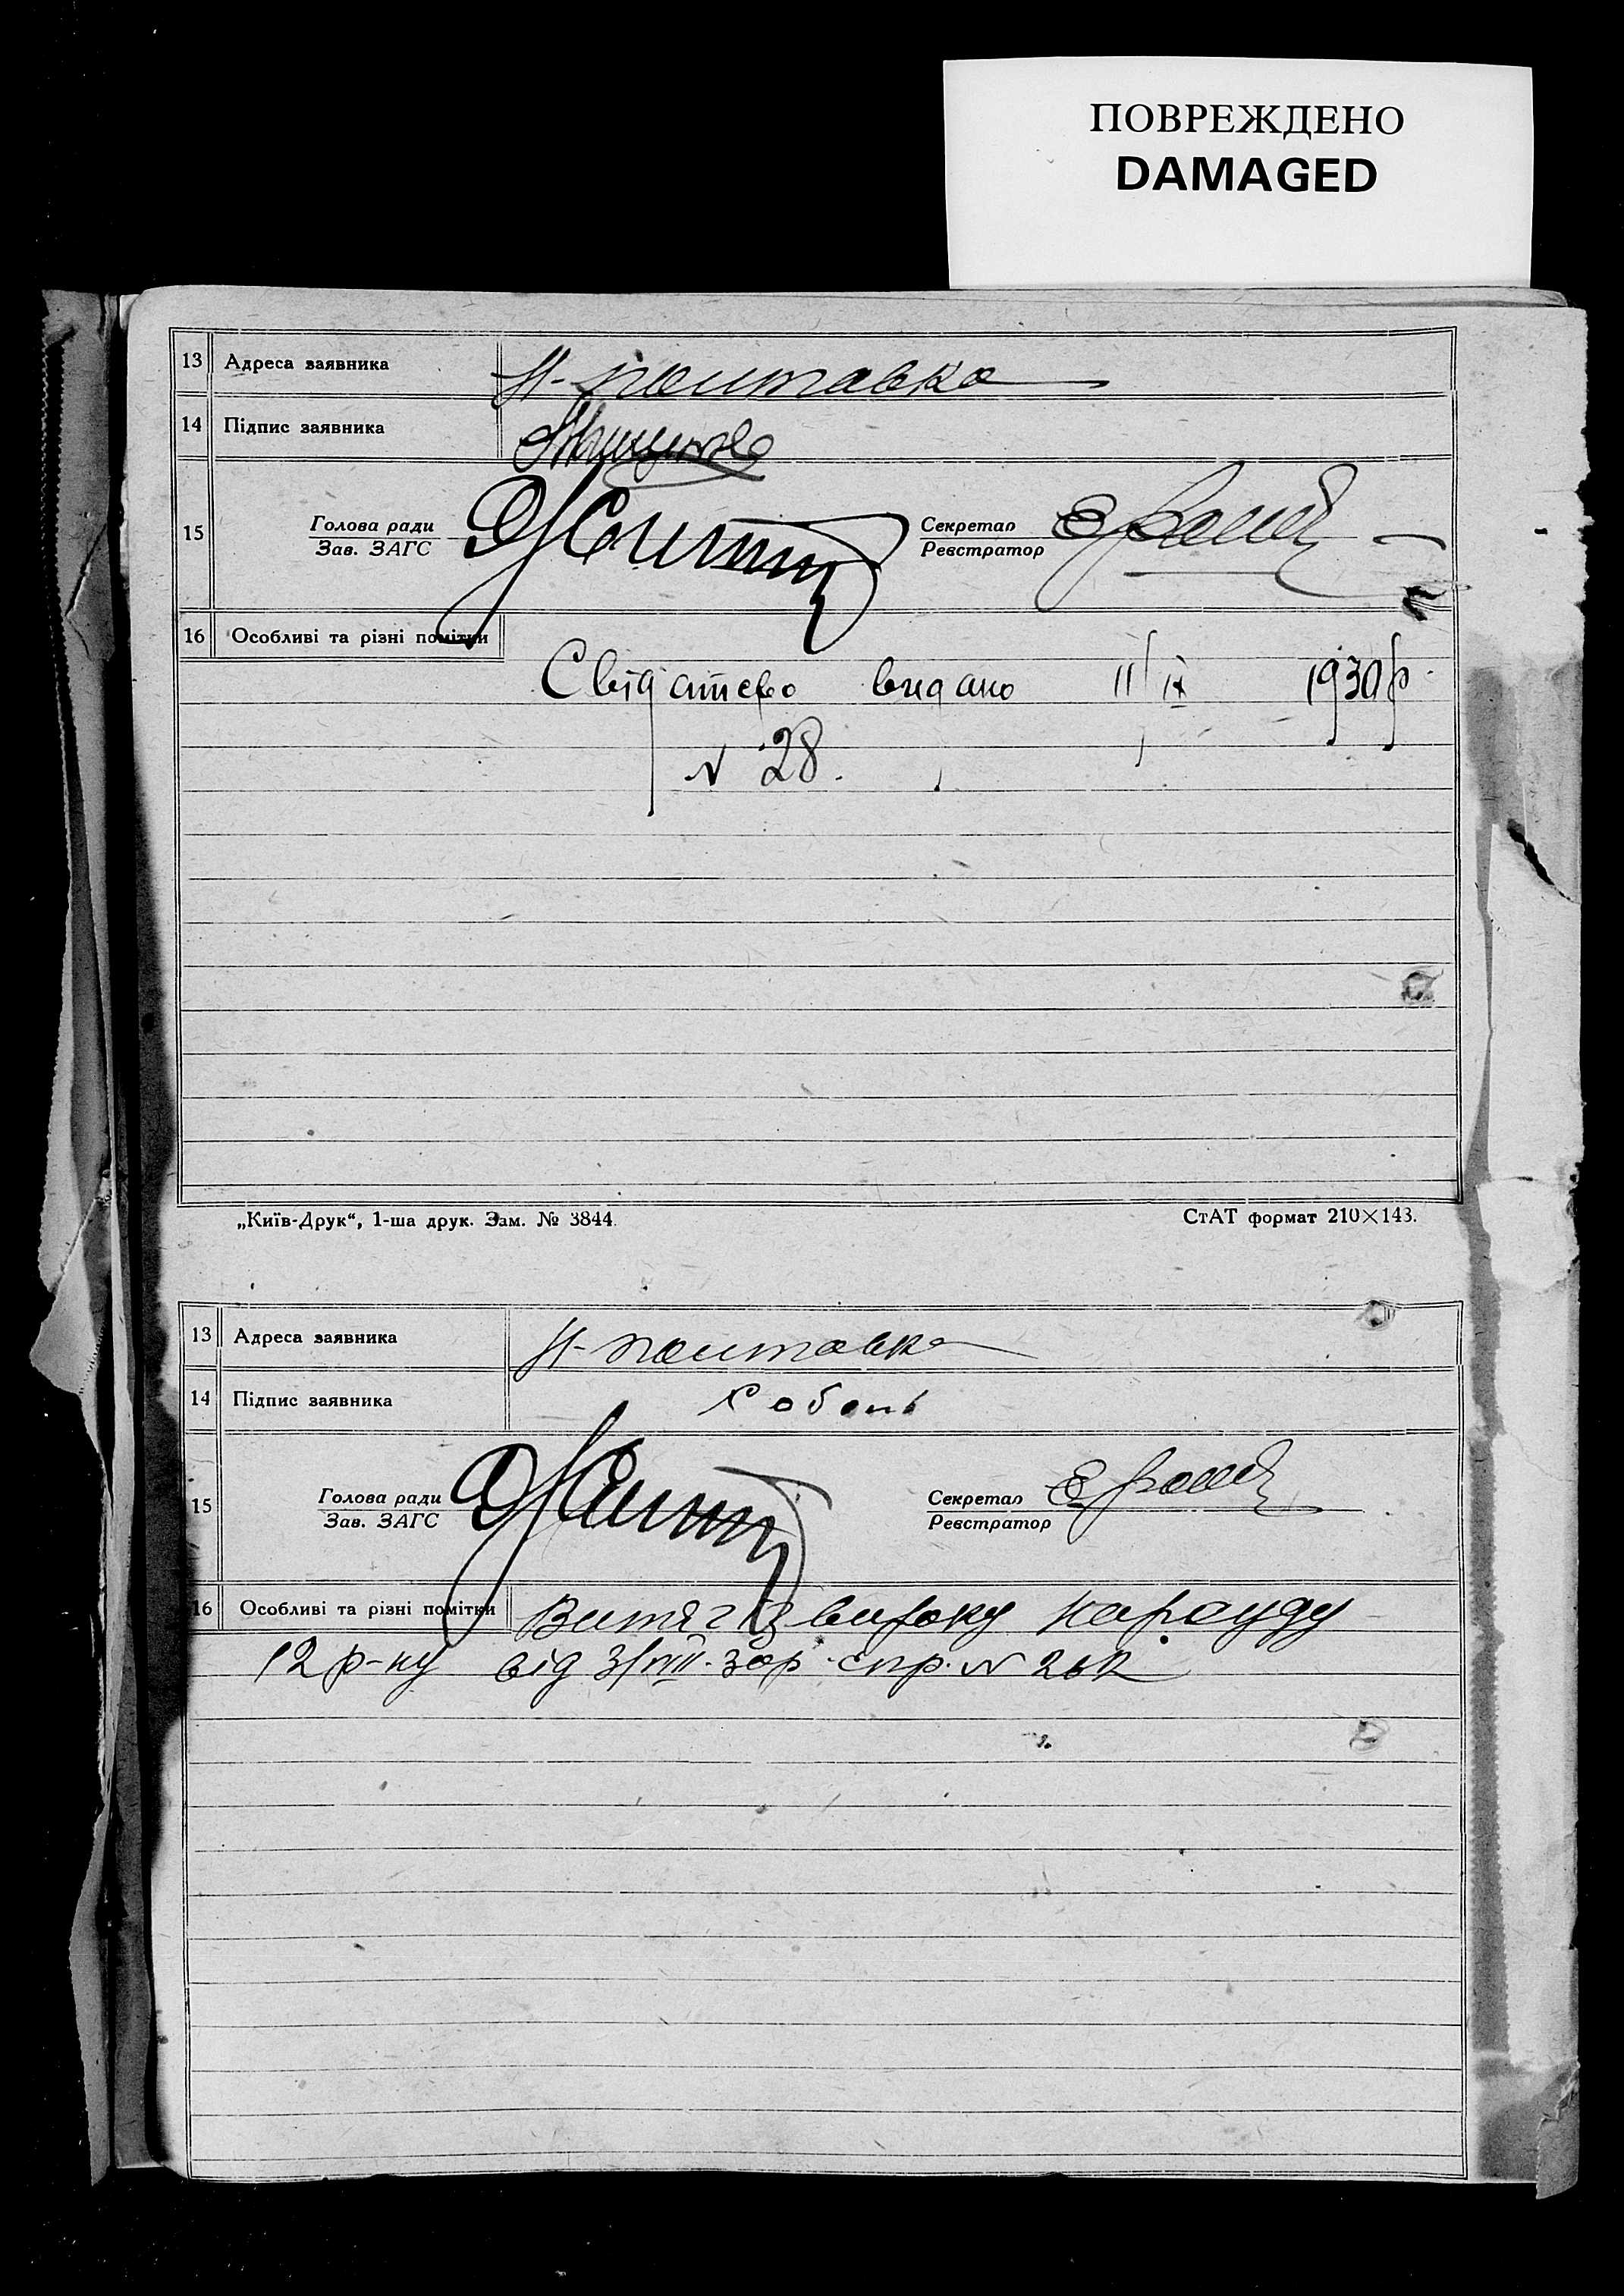 ПОВРЕЖДЕНО
DAMAGED
13 Адреса заявника
14 Підпис заявника
15 Голова ради
Зав. ЗАГС
Секретар
Реєстратор
16 Особливі та різні помітки
Свідоцтво видано 11/ІХ 1930 р.
N 28.
„Київ-Друк“, 1-ша друк. Зам. № 3844.
СтАТ формат 210×143.
13 Адреса заявника
14 Підпис заявника
15 Голова ради
Зав. ЗАГС
Секретар
Реєстратор
16 Особливі та різні помітки Витяг із вироку Нарсуду
12 р-ну від 3/VIII-30р. спр. N